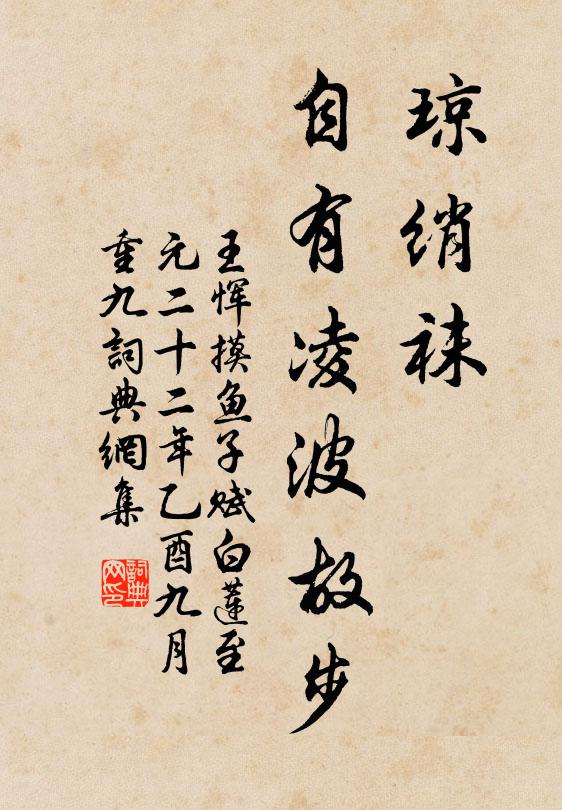 琼绡袜
自有凌波故步
王恽摸鱼子赋白蓮至
元二十二年乙酉九月
重九詞典網集
詞典网印